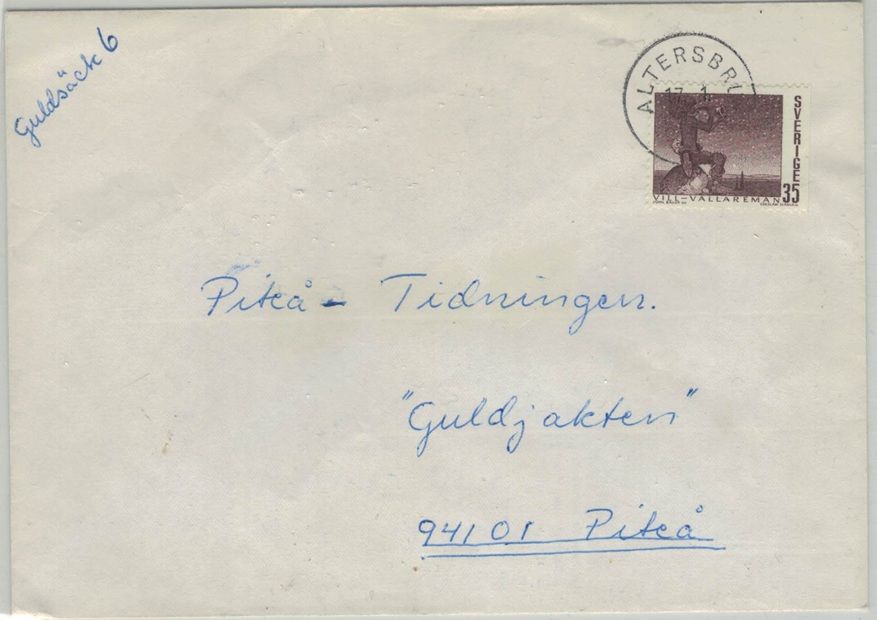 Guldsäck 6
ALTERSBRU
17. 1
SVERIGE
35
VILL-VALLAREMAN
Piteå- Tidningen.
"Guldjakten"
94101 Piteå